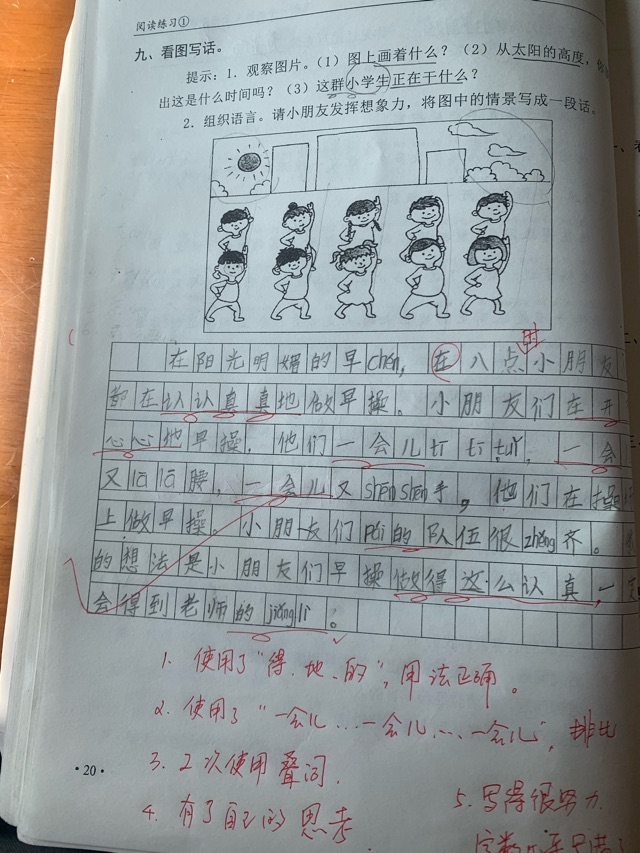 阅读练习①
九、看图写话。
提示：1. 观察图片。（1）图上画着什么？（2）从太阳的高度，你
出这是什么时间吗？（3）这群小学生正在干什么？
2. 组织语言。请小朋友发挥想象力，将图中的情景写成一段话。
在阳光明媚的早chén，在八点小朋友
时
都在认认真真地做早操。小朋友们在开
心心地早操，他们一会儿tī tī tuǐ，一会
又 腰，一会儿又shēn shēn手，他们在操
上做早操。小朋友们pái的队伍很zhěng齐。
的想法是小朋友们早操做得这么认真，一
会得到老师的jiǎng lì。
1. 使用了“得、地、的”，用法正确。
2. 使用了“一会儿…一会儿…一会儿”，排比
3. 2次使用叠词.
·20·
4. 有了自己的思考
5. 写得很努力.
字数